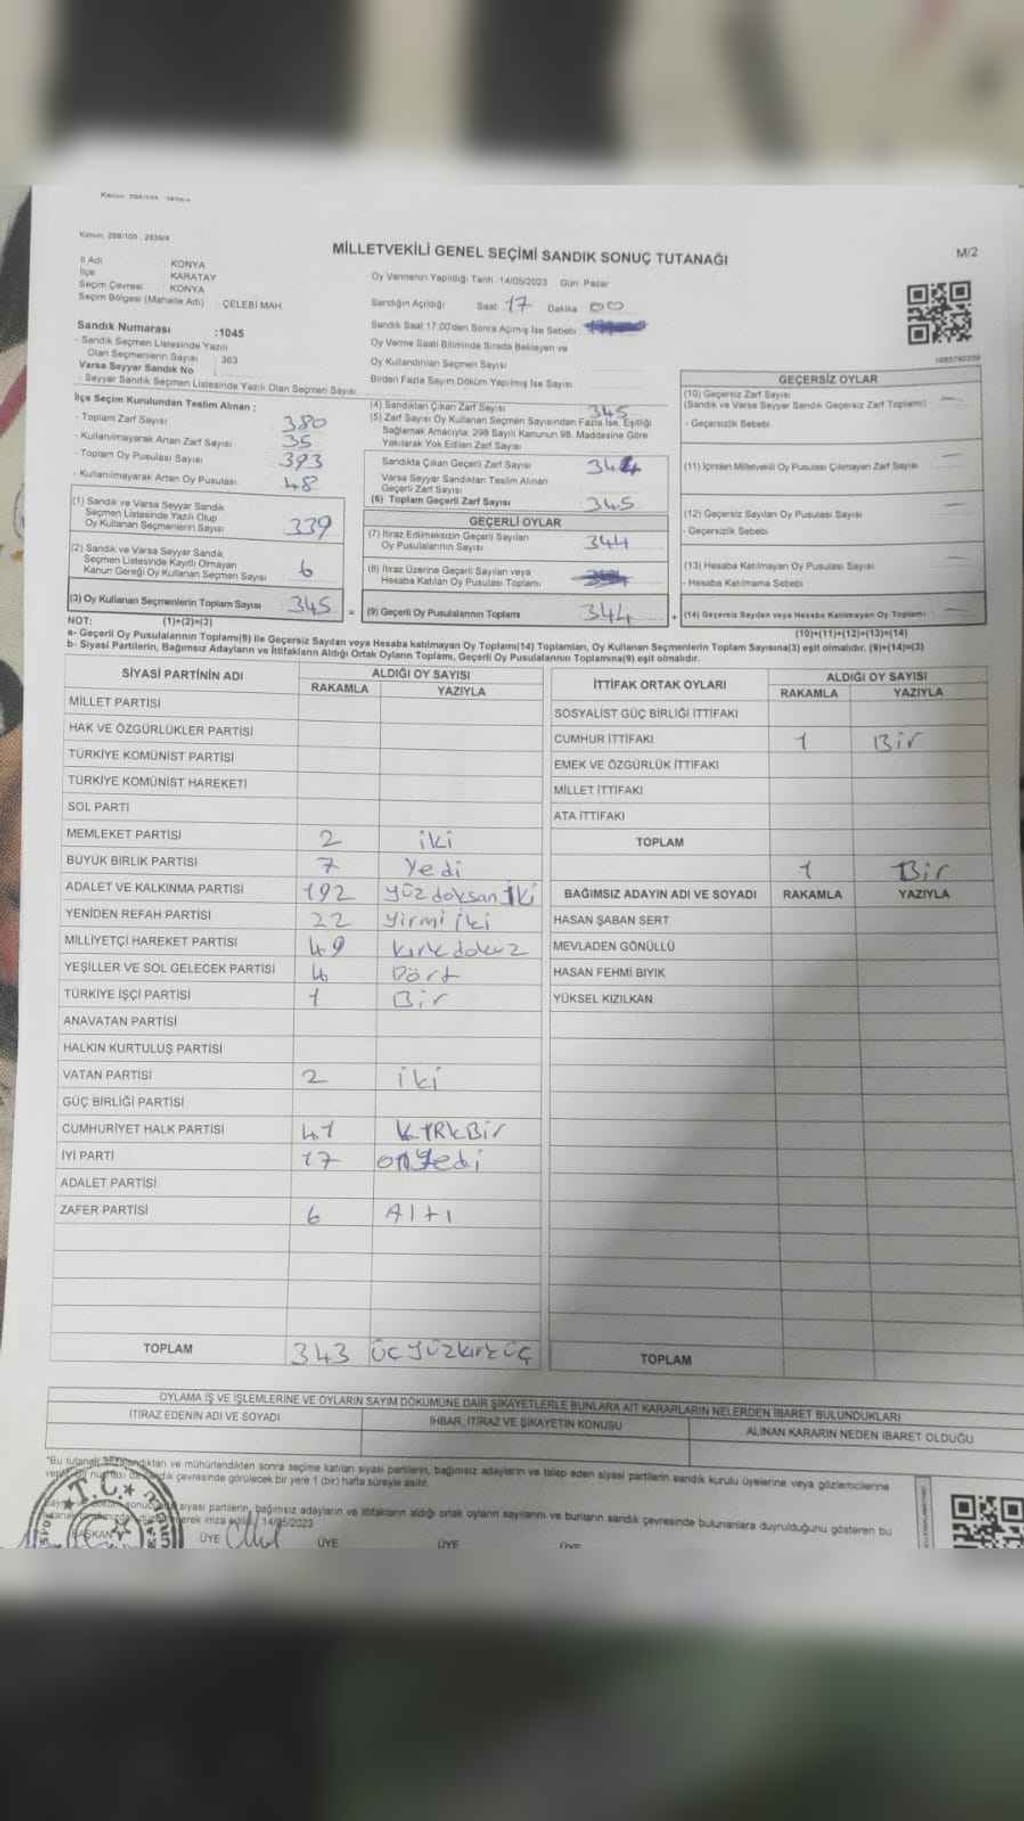 MİLLETVEKİLİ GENEL SEÇİMİ SANDIK SONUÇ TUTANAĞI
M/2
İl Adı KONYA
İlçe KARATAY
Seçim Çevresi KONYA
Seçim Bölgesi (Mahalle Adı) ÇELEBİ MAH.
Oy Vermenin Yapıldığı Tarih 14/05/2023 Gün Pazar
Sandığın Açıldığı Saat 17 Dakika 00
Sandık Saat 17:00'den Sonra Açılmış İse Sebebi
Oy Verme Saati Bitiminde Sırada Bekleyen ve
Oy Kullandırılan Seçmen Sayısı
Birden Fazla Sayım Döküm Yapılmış İse Sayısı
Sandık Numarası :1045
- Sandık Seçmen Listesinde Yazılı
Olan Seçmenlerin Sayısı : 363
Varsa Seyyar Sandık No
- Seyyar Sandık Seçmen Listesinde Yazılı Olan Seçmen Sayısı
İlçe Seçim Kurulundan Teslim Alınan :
- Toplam Zarf Sayısı 380
- Kullanılmayarak Artan Zarf Sayısı 35
- Toplam Oy Pusulası Sayısı 393
- Kullanılmayarak Artan Oy Pusulası 48
(1) Sandık ve Varsa Seyyar Sandık
Seçmen Listesinde Yazılı Olup
Oy Kullanan Seçmenlerin Sayısı 339
(2) Sandık ve Varsa Seyyar Sandık
Seçmen Listesinde Kayıtlı Olmayan
Kanun Gereği Oy Kullanan Seçmen Sayısı 6
(3) Oy Kullanan Seçmenlerin Toplam Sayısı 345 =
(4) Sandıktan Çıkan Zarf Sayısı 345
(5) Zarf Sayısı Oy Kullanan Seçmen Sayısından Fazla İse, Eşitliği
Sağlamak Amacıyla; 298 Sayılı Kanunun 98. Maddesine Göre
Yakılarak Yok Edilen Zarf Sayısı
Sandıkta Çıkan Geçerli Zarf Sayısı 344
Varsa Seyyar Sandıktan Teslim Alınan
Geçerli Zarf Sayısı
(6) Toplam Geçerli Zarf Sayısı 345
GEÇERLİ OYLAR
(7) İtiraz Edilmeksizin Geçerli Sayılan
Oy Pusulalarının Sayısı 344
(8) İtiraz Üzerine Geçerli Sayılan veya
Hesaba Katılan Oy Pusulası Toplamı
(9) Geçerli Oy Pusulalarının Toplamı 344 +
GEÇERSİZ OYLAR
(10) Geçersiz Zarf Sayısı
(Sandık ve Varsa Seyyar Sandık Geçersiz Zarf Toplamı) -
- Geçersizlik Sebebi
(11) İçinden Milletvekili Oy Pusulası Çıkmayan Zarf Sayısı -
(12) Geçersiz Sayılan Oy Pusulası Sayısı
- Geçersizlik Sebebi
(13) Hesaba Katılmayan Oy Pusulası Sayısı -
- Hesaba Katılmama Sebebi
(14) Geçersiz Sayılan veya Hesaba Katılmayan Oy Toplamı -
NOT: (1)+(2)=(3)
(10)+(11)+(12)+(13)=(14)
a- Geçerli Oy Pusulalarının Toplamı(9) ile Geçersiz Sayılan veya Hesaba katılmayan Oy Toplamı(14) Toplamları, Oy Kullanan Seçmenlerin Toplam Sayısına(3) eşit olmalıdır. (9)+(14)=(3)
b- Siyasi Partilerin, Bağımsız Adayların ve İttifakların Aldığı Ortak Oyların Toplamı, Geçerli Oy Pusulalarının Toplamına(9) eşit olmalıdır.
SİYASİ PARTİNİN ADI
ALDIĞI OY SAYISI
RAKAMLA YAZIYLA
MİLLET PARTİSİ
HAK VE ÖZGÜRLÜKLER PARTİSİ
TÜRKİYE KOMÜNİST PARTİSİ
TÜRKİYE KOMÜNİST HAREKETİ
SOL PARTİ
MEMLEKET PARTİSİ 2 iki
BÜYÜK BİRLİK PARTİSİ 7 Yedi
ADALET VE KALKINMA PARTİSİ 192 yüzdoksan iki
YENİDEN REFAH PARTİSİ 22 yirmi iki
MİLLİYETÇİ HAREKET PARTİSİ 49 kırkdokuz
YEŞİLLER VE SOL GELECEK PARTİSİ 4 Dört
TÜRKİYE İŞÇİ PARTİSİ 1 Bir
ANAVATAN PARTİSİ
HALKIN KURTULUŞ PARTİSİ
VATAN PARTİSİ 2 iki
GÜÇ BİRLİĞİ PARTİSİ
CUMHURİYET HALK PARTİSİ 41 KIRKBİR
İYİ PARTİ 17 onyedi
ADALET PARTİSİ
ZAFER PARTİSİ 6 Altı
TOPLAM 343 üçyüzkırküç
İTTİFAK ORTAK OYLARI
ALDIĞI OY SAYISI
RAKAMLA YAZIYLA
SOSYALİST GÜÇ BİRLİĞİ İTTİFAKI
CUMHUR İTTİFAKI 1 Bir
EMEK VE ÖZGÜRLÜK İTTİFAKI
MİLLET İTTİFAKI
ATA İTTİFAKI
TOPLAM 1 Bir
BAĞIMSIZ ADAYIN ADI VE SOYADI RAKAMLA YAZIYLA
HASAN ŞABAN SERT
MEVLADEN GÖNÜLLÜ
HASAN FEHMİ BIYIK
YÜKSEL KIZILKAN
TOPLAM
OYLAMA İŞ VE İŞLEMLERİNE VE OYLARIN SAYIM DÖKÜMÜNE DAİR ŞİKAYETLERLE BUNLARA AİT KARARLARIN NELERDEN İBARET BULUNDUKLARI
İTİRAZ EDENİN ADI VE SOYADI
İHBAR, İTİRAZ VE ŞİKAYETİN KONUSU
ALINAN KARARIN NEDEN İBARET OLDUĞU
ve mühürlendikten sonra seçime katılan siyasi partilerin, bağımsız adayların ve talep eden siyasi partilerin sandık kurulu üyelerine veya gözlemcilerine
çevresinde görülecek bir yere 1 (bir) hafta süreyle asılır.
siyasi partilerin, bağımsız adayların ve ittifakların aldığı ortak oyların sayılarını ve bunların sandık çevresinde bulunanlara duyurulduğunu gösteren bu
14/05/2023
T.C.
BAŞKAN ÜYE ÜYE ÜYE